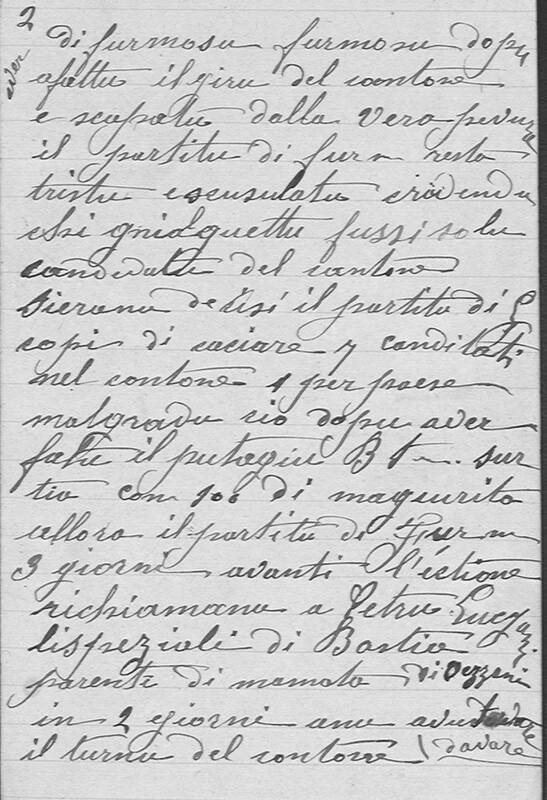 2
di furmosu furmosu dopu
aver
afattu il giru del contone
e scapatu dalla vera pevuza
il partitu di furm resta
tristu e scusulatu cridendu
chi gnidguettu fussi solu
candidattu del contone
sieranu decisi il partitu di
copi di caciare 7 canditati
nel contone 1 per paese
malgradu cio dopu aver
fattu il putagiu B T sur
tia com 100 di magurita
allora il partitu di Furm
3 giorni avanti l'ectione
richiamanu a Petru Lucg
lispeziali di Bastia
parenti di mamota di Vezzani
in 2 giorni anu avu
il turnu del contone davare